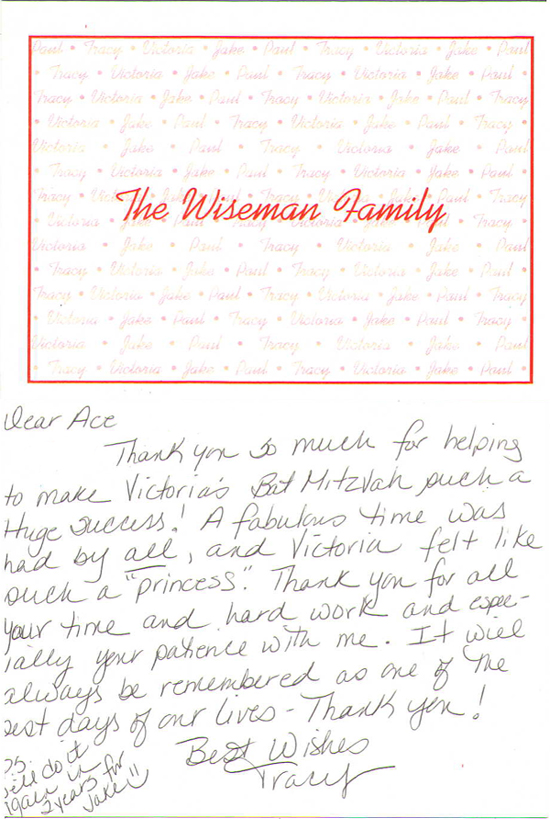 Paul • Tracy • Victoria • Jake • Paul • Tracy • Victoria • Jake • Paul
• Tracy • Victoria • Jake • Paul • Tracy • Victoria • Jake • Paul •
Tracy • Victoria • Jake • Paul • Tracy • Victoria • Jake • Paul • Tracy
• Victoria • Jake • Paul • Tracy • Victoria • Jake • Paul • Tracy •
Victoria • Jake • Paul • Tracy • Victoria • Jake • Paul
• Tracy • Victoria • Jake • Paul • Tracy • Victoria • Jake • Paul •
Tracy • Paul • Tracy
The Wiseman Family
• Victoria • Tracy •
Victoria • Jake • Paul • Tracy • Victoria • Jake • Paul
• Tracy • Victoria • Jake • Paul • Tracy • Victoria • Jake • Paul •
Tracy • Victoria • Jake • Paul • Tracy • Victoria • Jake • Paul • Tracy
• Victoria • Jake • Paul • Tracy • Victoria • Jake • Paul • Tracy •
Victoria • Jake • Paul • Tracy • Victoria • Jake • Paul
• Tracy • Victoria • Jake • Paul • Tracy • Victoria • Jake • Paul •
Dear Ace
Thank you so much for helping
to make Victoria's Bat Mitzvah such a
Huge success! A fabulous time was
had by all, and Victoria felt like
such a "princess". Thank you for all
your time and hard work and espec-
ially your patience with me. It will
always be remembered as one of the
best days of our lives - Thank you!
Best Wishes
Tracy
PS.
we'll do it
again in
2 years for
Jake!!